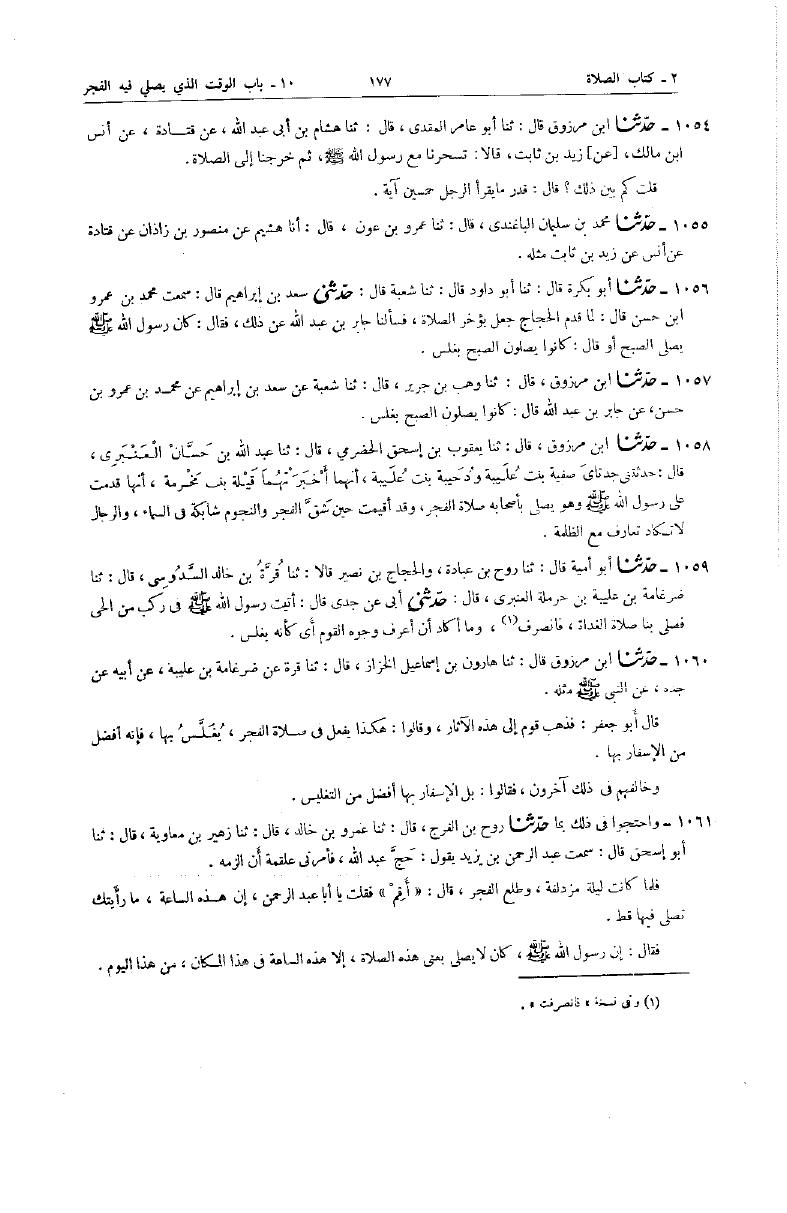 ٢ ـ كتاب الصلاة ١٧٧ ١٠ ـ باب الوقت الذي يصلي فيه الفجر
١٠٥٤ ـ حدّثنا ابن مرزوق قال : ثنا أبو عامر العقدى ، قال : ثنا هشام بن أبى عبد الله ، عن قتادة ، عن أنس
ابن مالك، [عن] زيد بن ثابت، قالا: تسحرنا مع رسول الله ﷺ، ثم خرجنا إلى الصلاة.
قلت كم بين ذلك ؟ قال : قدر مايقرأ الرجل خمسين آية .
١٠٥٥ ـ حدّثنا محمد بن سليمان الباغندى، قال : ثنا عمرو بن عون ، قال : أنا هشيم عن منصور بن زاذان عن قتادة
عن أنس عن زيد بن ثابت مثله .
١٠٥٦ ـ حدّثنا أبو بكرة قال : ثنا أبو داود قال : ثنا شعبة قال : حدّثنى سعد بن إبراهيم قال : سمعت محمد بن عمرو
ابن حسن قال : لما قدم الحجاج جعل يؤخر الصلاة ، فسألنا جابر بن عبد الله عن ذلك ، فقال : كان رسول الله ﷺ
يصلى الصبح أو قال : كانوا يصلون الصبح بغلس .
١٠٥٧ ـ حدّثنا ابن مرزوق ، قال : ثنا وهب بن جرير ، قال : ثنا شعبة عن سعد بن إبراهيم عن محمد بن عمرو بن
حسن، عن جابر بن عبد الله قال : كانوا يصلون الصبح بغلس .
١٠٥٨ ـ حدّثنا ابن مرزوق ، قال : ثنا يعقوب بن إسحق الحضرمي ، قال : ثنا عبد الله بن حَسَّانَ الْعَنْبَرِى ،
قال : حدثتنى جدتاى صفية بنت عُلَيبة ودُحَيبة بنت عُلَيبة ، أنهما أَخْبَرَتْهُمَا قَيْلة بنت مخرمة ، أنها قدمت
على رسول الله ﷺ وهو يصلى بأصحابه صلاة الفجر، وقد أقيمت حين شقَّ الفجر والنجوم شابكة فى السماء ، والرجال
لاتكاد تعارف مع الظلمة .
١٠٥٩ ـ حدّثنا أبو أمية قال : ثنا روح بن عبادة ، والحجاج بن نصير قالا : ثنا قُرَّةُ بن خالد السَّدُوسِى ، قال : ثنا
ضرغامة بن عليبة بن حرملة العنبرى ، قال : حدّثنى أبى عن جدى قال : أتيت رسول الله ﷺ فى ركب من الحى
فصلى بنا صلاة الغداة ، فانصرف(١) ، وما أكاد أن أعرف وجوه القوم أى كأنه بغلس .
١٠٦٠ ـ حدّثنا ابن مرزوق قال : ثنا هارون بن إسماعيل الخزاز ، قال : ثنا قرة عن ضرغامة بن عليبة ، عن أبيه عن
جده ، عن النبى ﷺ مثله .
قال أبو جعفر : فذهب قوم إلى هذه الآثار ، وقالوا : هكذا يفعل فى صلاة الفجر ، يُغَلَّسُ بها ، فإنه أفضل
من الإسفار بها .
وخالفهم فى ذلك آخرون ، فقالوا : بل الإسفار بها أفضل من التغليس .
١٠٦١ ـ واحتجوا فى ذلك بما حدّثنا روح بن الفرج ، قال : ثنا عمرو بن خالد ، قال : ثنا زهير بن معاوية ، قال : ثنا
أبو إسحق قال : سمعت عبد الرحمن بن يزيد يقول : حَجَّ عبد الله ، فأمرنى علقمة أن الزمه .
فلما كانت ليلة مزدلفة ، وطلع الفجر ، قال : « أَقِمْ » فقلت يا أبا عبد الرحمن ، إن هذه الساعة ، ما رأيتك
تصلى فيها قط .
فقال : إن رسول الله ﷺ ، كان لايصلى يعنى هذه الصلاة ، إلا هذه الساعة فى هذا المكان ، من هذا اليوم .
(١) وفى نسخة « فانصرفت » .